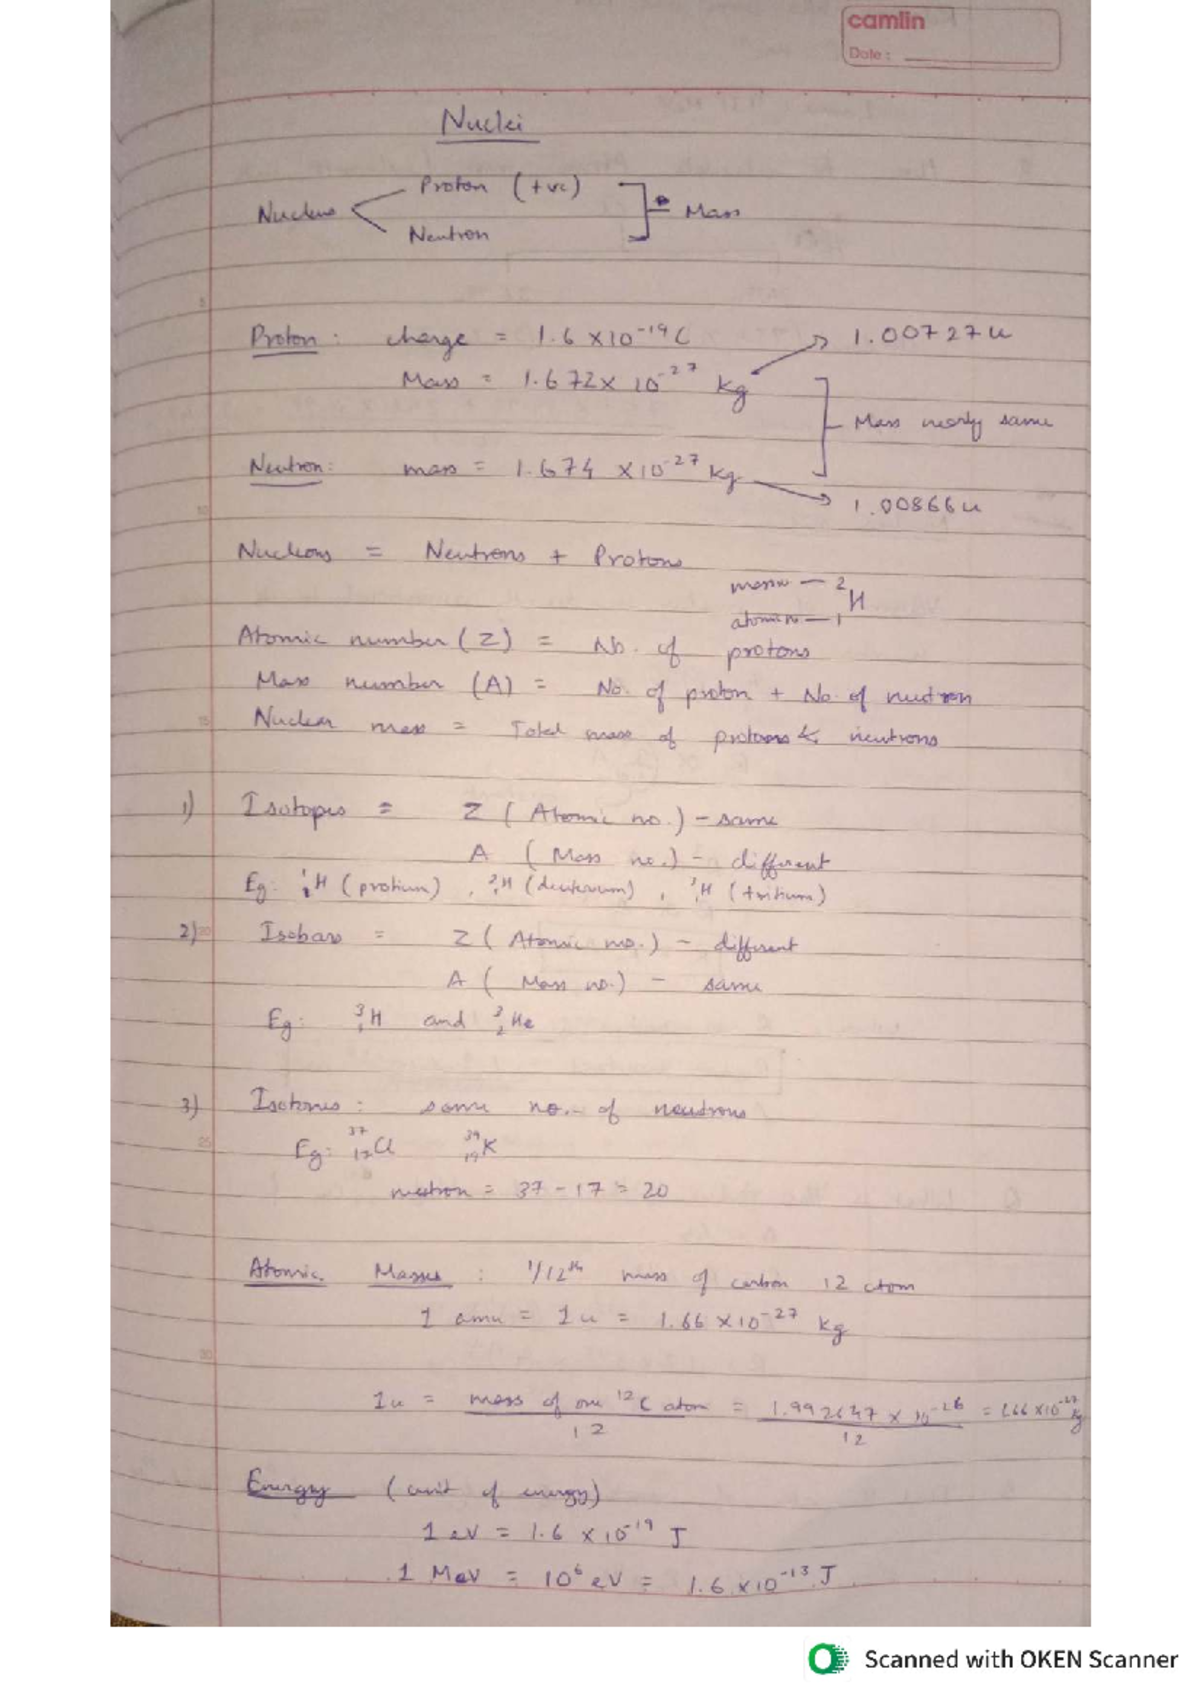 camlin
Date :
Nuclei
Nucleus
Proton (+ve)
Neutron
Mass
Proton : charge = 1.6 × 10⁻¹⁹ C
1.00727 u
Mass = 1.672 × 10⁻²⁷ kg
Mass nearly same
Neutron : mass = 1.674 × 10⁻²⁷ kg
1.00866 u
Nucleons = Neutrons + Protons
mass no — 2
H
atomic no — 1
Atomic number (Z) = No. of protons
Mass number (A) = No. of proton + No of neutron
Nuclear mass = Total mass of protons & neutrons
1) Isotopes = Z ( Atomic no. ) – same
A ( Mass no. ) – different
Eg: ¹₁H (protium) , ²₁H (deuterium) , ³₁H (tritium)
2) Isobars = Z ( Atomic no. ) – different
A ( Mass no. ) – same
Eg: ³₁H and ³₂He
3) Isotones : same no. of neutrons
Eg: ³⁷₁₇Cl ³⁹₁₉K
neutron = 37 – 17 = 20
Atomic Masses : 1/12th mass of carbon 12 atom
1 amu = 1 u = 1.66 × 10⁻²⁷ kg
1u = mass of one ¹²C atom / 12 = 1.992647 × 10⁻²⁶ / 12 = 1.66 × 10⁻²⁷ kg
Energy (unit of energy)
1 eV = 1.6 × 10⁻¹⁹ J
1 MeV = 10⁶ eV = 1.6 × 10⁻¹³ J
Scanned with OKEN Scanner